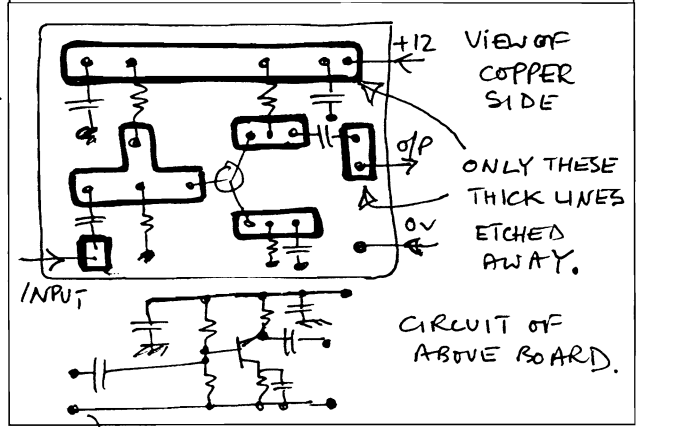 +12
VIEW OF
COPPER
SIDE
O/P
ONLY THESE
THICK LINES
ETCHED
AWAY.
0V
INPUT
CIRCUIT OF
ABOVE BOARD.